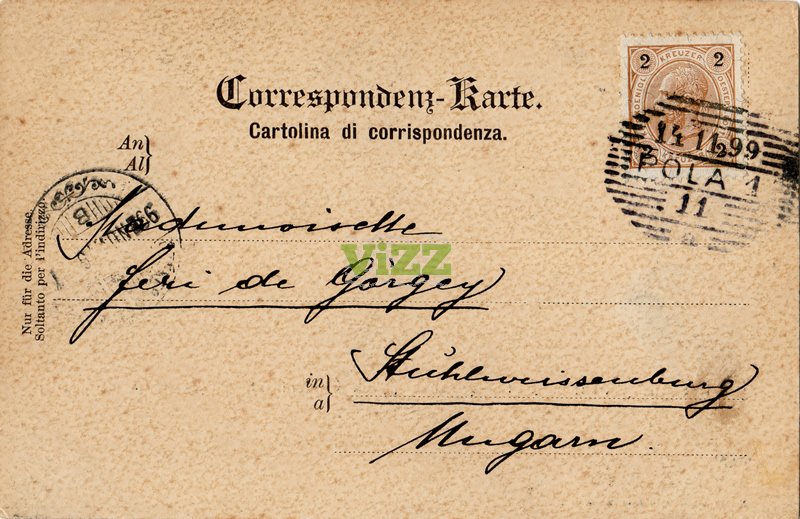 Correspondenz-Karte.
Cartolina di corrispondenza.
2 KREUZER 2
14 11 99
POLA 1
11
An
Al
Mademoiselle
Jeri de Görgey
in
a
Stuhlweissenburg
Ungarn.
Nur für die Adresse.
Soltanto per l'indirizzo.
vizz